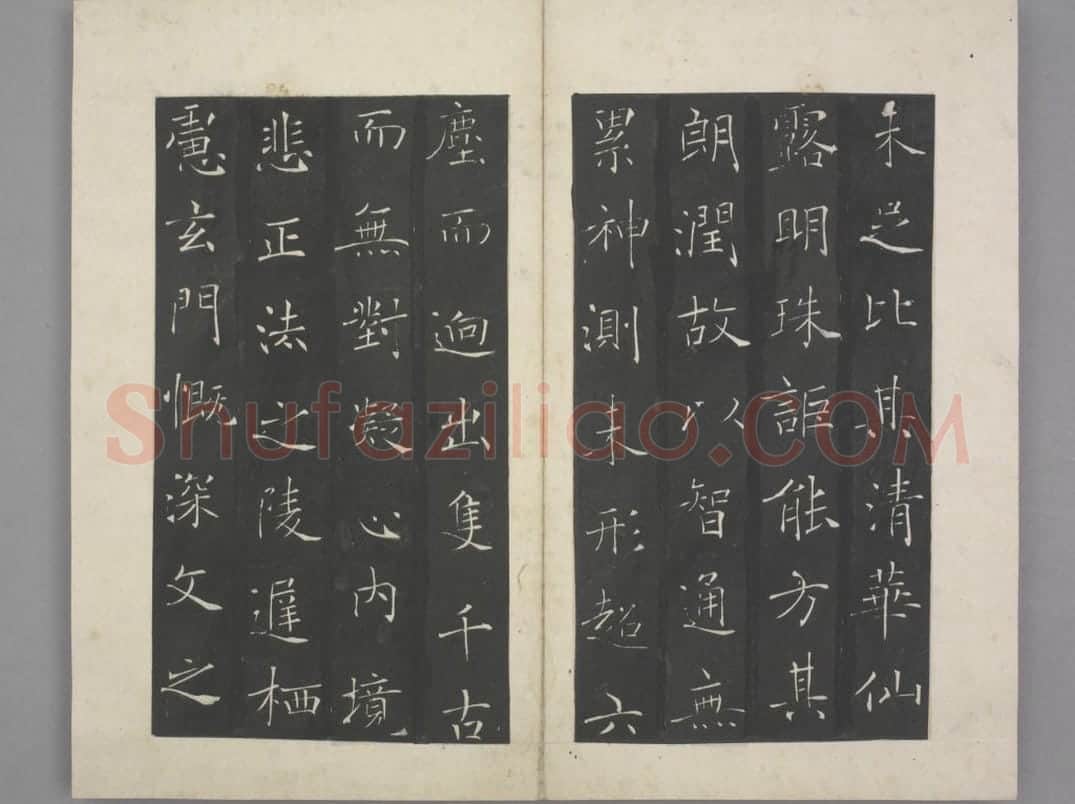 未足比其清華仙
露明珠詎能方其
朗潤故以智通無
累神測未形超六
塵而逈出隻千古
而無對凝心內境
悲正法之陵遲栖
慮玄門慨深文之
Shufaziliao.COM